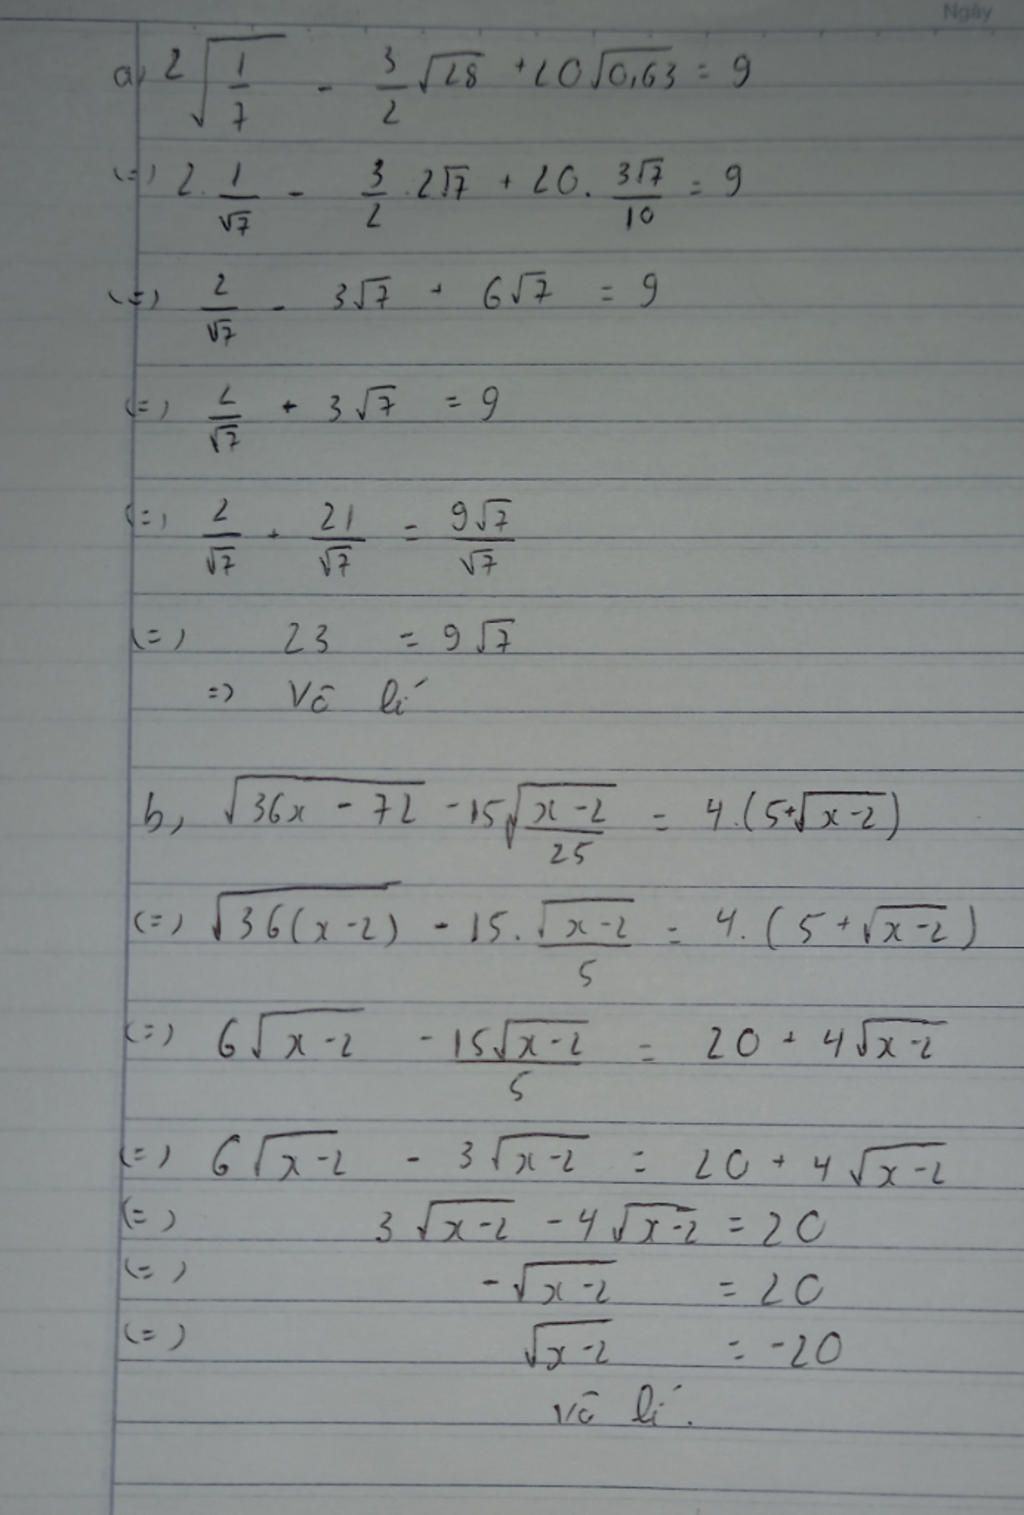 Ngày
a, 2√(1/7) - 3/2 √28 + 20√0,63 = 9
(=) 2. 1/√7 - 3/2 . 2√7 + 20. 3√7/10 = 9
(=) 2/√7 - 3√7 + 6√7 = 9
(=) 2/√7 + 3√7 = 9
(=) 2/√7 + 21/√7 = 9√7/√7
(=) 23 = 9√7
=> Vô lí
b, √(36x - 72) - 15√((x-2)/25) = 4.(5+√(x-2))
(=) √(36(x-2)) - 15. √(x-2)/5 = 4. (5 + √(x-2))
(=) 6√(x-2) - 15√(x-2)/5 = 20 + 4√(x-2)
(=) 6√(x-2) - 3√(x-2) = 20 + 4√(x-2)
(=) 3√(x-2) - 4√(x-2) = 20
(=) -√(x-2) = 20
(=) √(x-2) = -20
Vô lí.